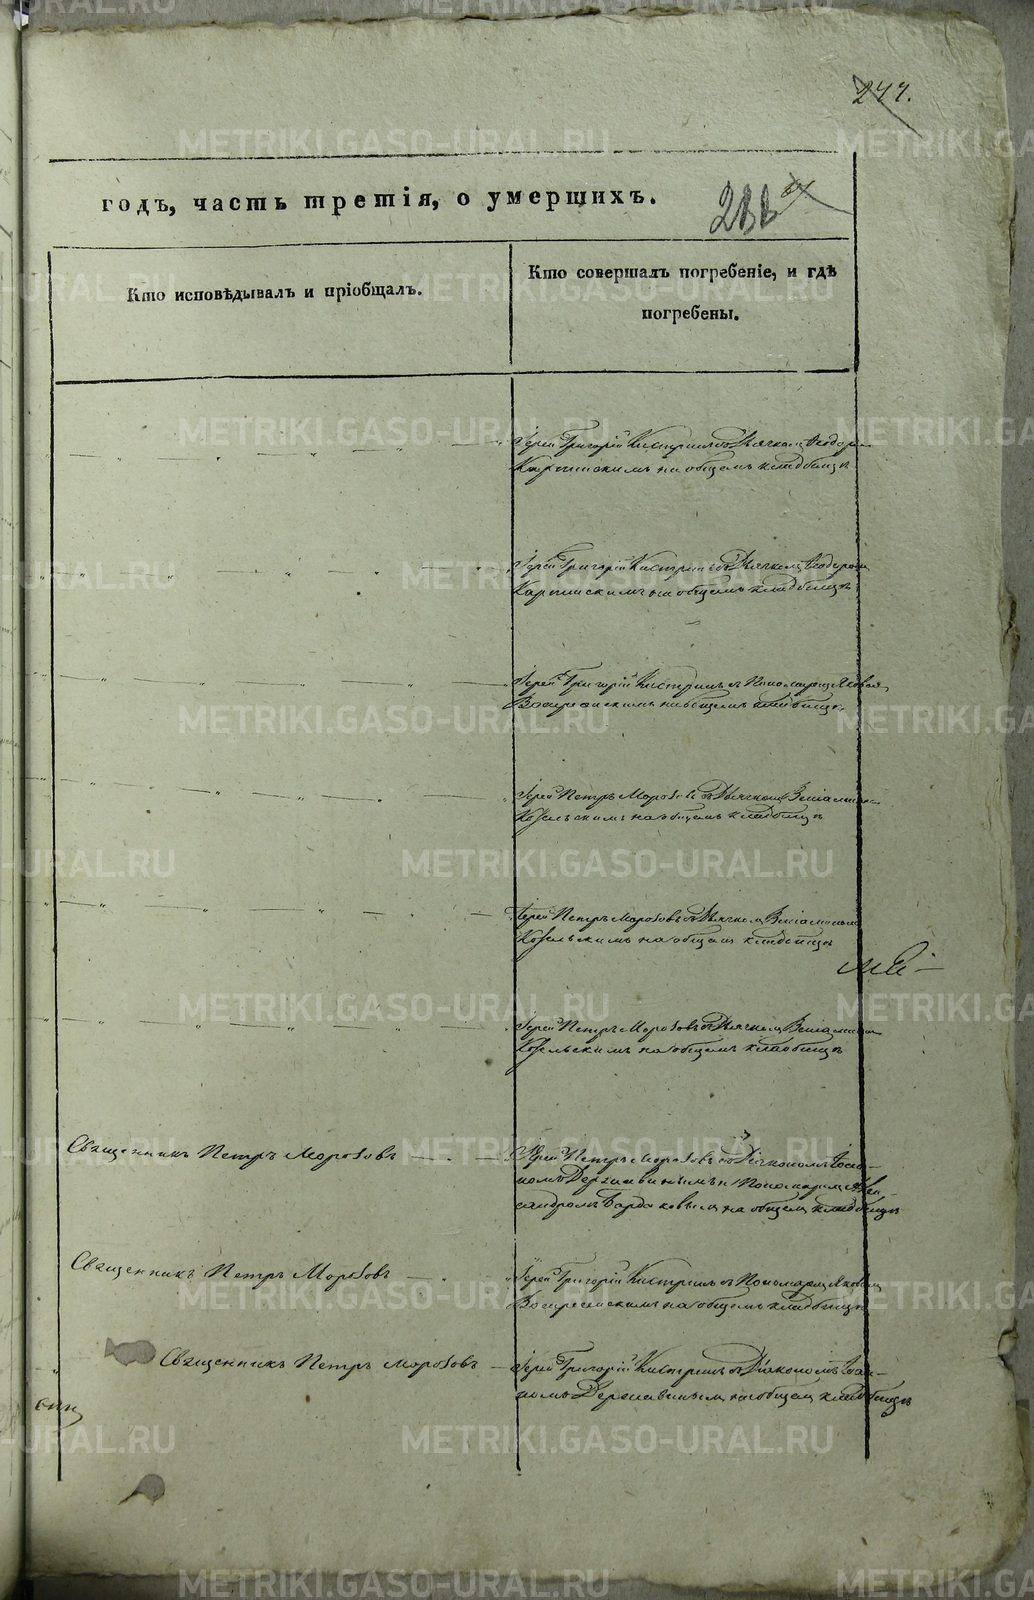 277.
годъ, часть третія, о умершихъ.
288
Кто исповѣдывалъ и пріобщалъ.
Кто совершалъ погребеніе, и гдѣ
погребены.
Іерей Григорій Кистринъ съ Дьячкомъ Ѳеодором
Карпинскимъ на общемъ кладбищѣ
Іерей Григорій Кистринъ съ Дьячкомъ Ѳеодором
Карпинскимъ на общемъ кладбищѣ
Іерей Григорій Кистринъ съ Пономаремъ Яковом
Воскресенскимъ на общемъ кладбищѣ
Іерей Петръ Морозовъ съ Дьячкомъ Веніамином
Козельскимъ на общемъ кладбищѣ
Іерей Петръ Морозовъ съ Дьячкомъ Веніамином
Козельскимъ на общемъ кладбищѣ
Іерей Петръ Морозовъ съ Дьячкомъ Веніамином
Козельскимъ на общемъ кладбищѣ
Священникъ Петръ Морозовъ
Іерей Петръ Морозовъ съ Діакономъ Іоан-
номъ Державинымъ и Пономаремъ Алек-
сандромъ на общемъ кладбищѣ
Священникъ Петръ Морозовъ
Іерей Григорій Кистринъ съ Пономаремъ Яковом
Воскресенскимъ на общемъ кладбищѣ
Священникъ Петръ Морозовъ
Іерей Григорій Кистринъ съ Діакономъ Іоан-
номъ Державинымъ на общемъ кладбищѣ
METRIKI.GASO-URAL.RU